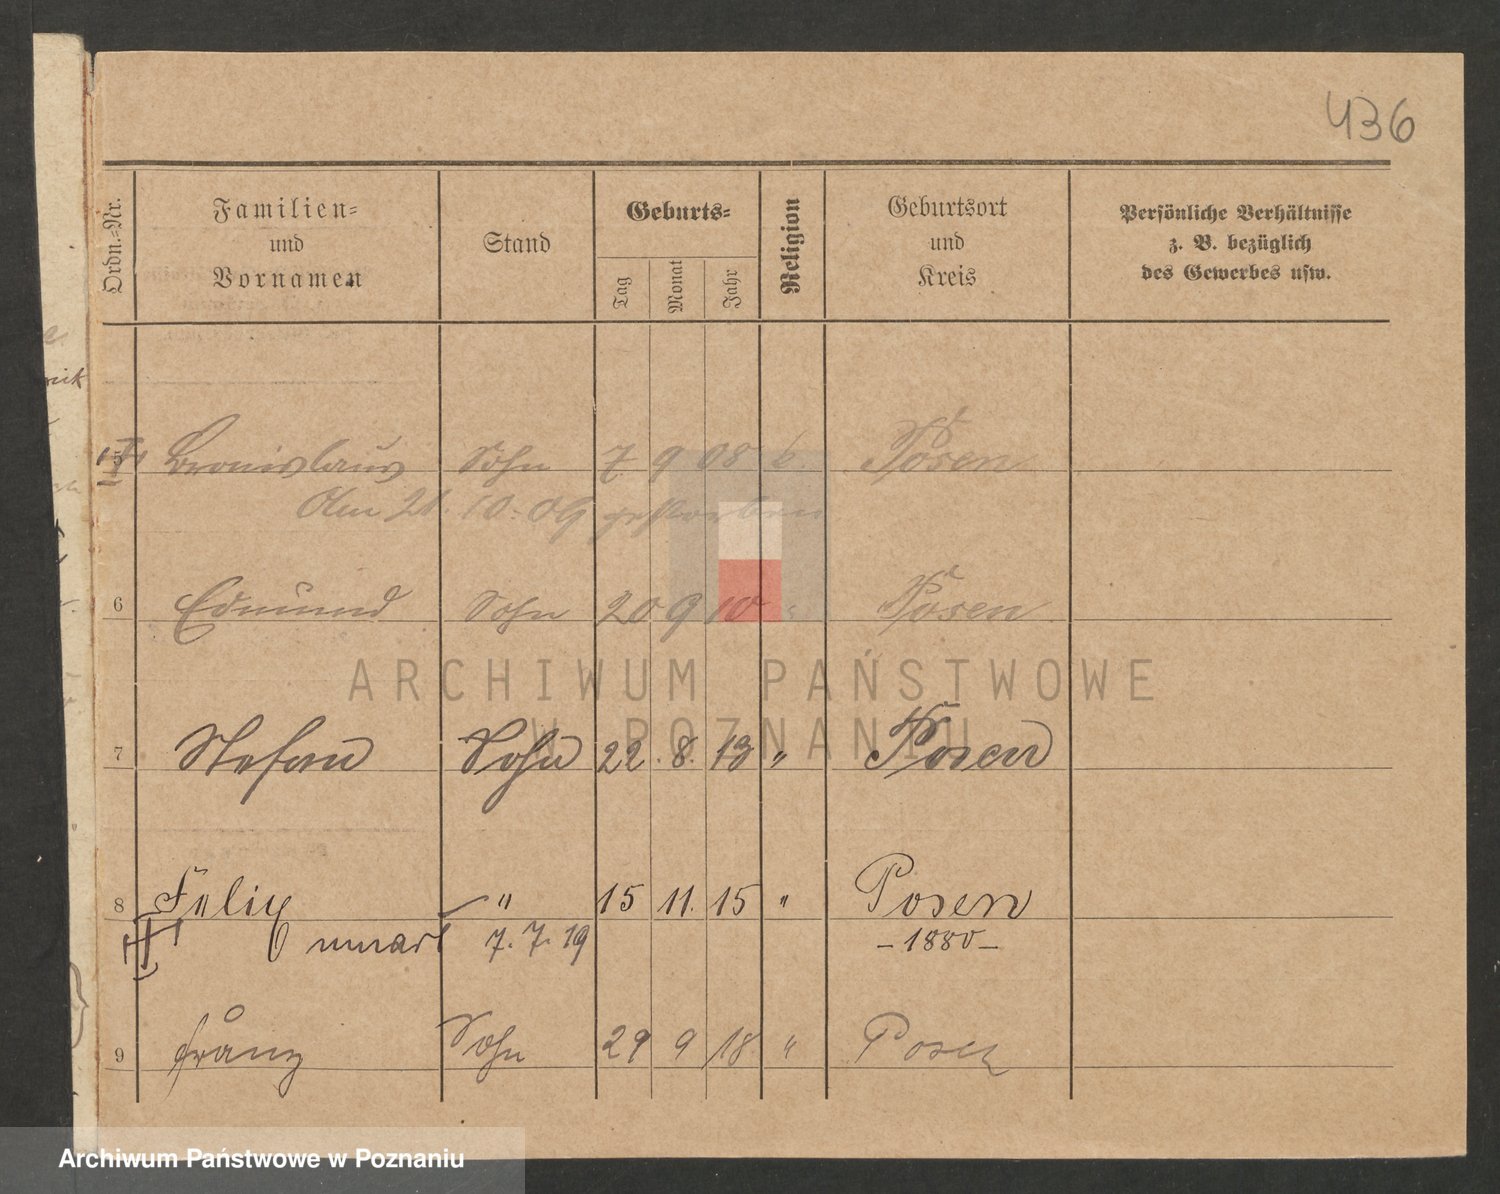 436
Ordn.=Nr.
Familien=
und
Vornamen
Stand
Geburts=
Tag
Monat
Jahr
Religion
Geburtsort
und
Kreis
Persönliche Verhältnisse
z. B. bezüglich
des Gewerbes usw.
5 Bronislaus Sohn 7 9 08 k. Posen
Am 21. 10. 09 gestorben
6 Edmund Sohn 20 9 10 " Posen
ARCHIWUM PAŃSTWOWE
W POZNANIU
7 Stefan Sohn 22. 8. 13 " Posen
8 Felix " 15 11. 15 " Posen
umarł 7. 7. 19 - 1880 -
9 Franz Sohn 29 9 18 " Posen
Archiwum Państwowe w Poznaniu